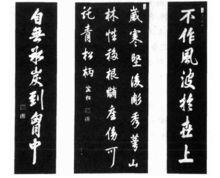 不作風波於世上
歲寒堅後彫秀萼山
林性移根髄產傷可
託青松柄
自無冰炭到胸中